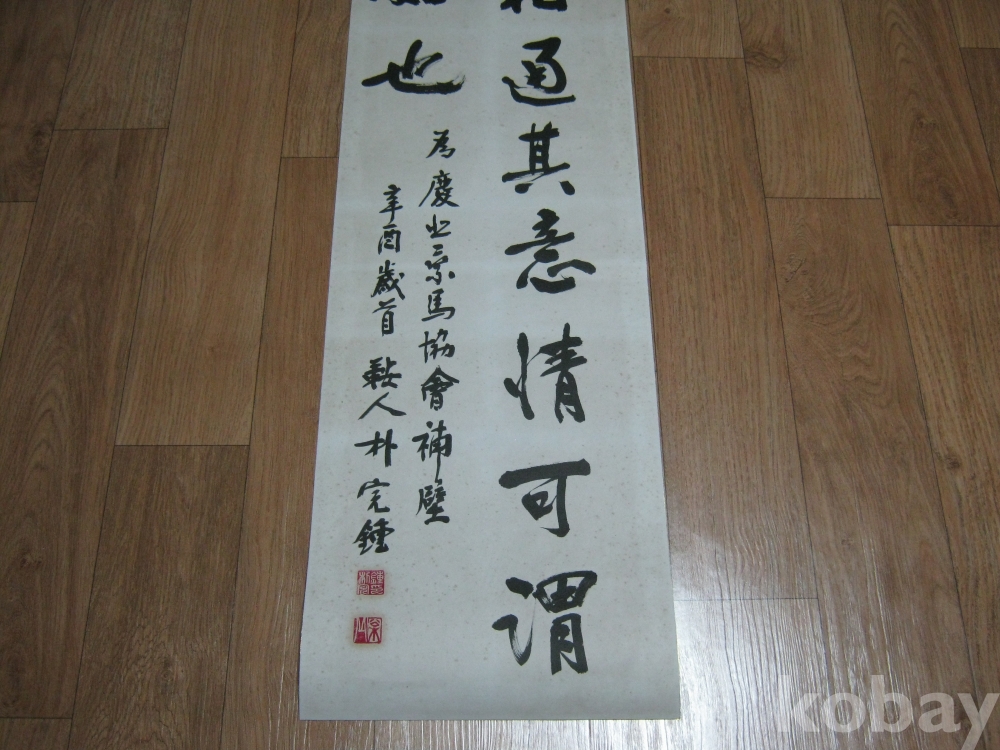 通其意情可謂
也
為慶北乘馬協會補壁
辛酉歲首 鞍人朴完鍾
kobay